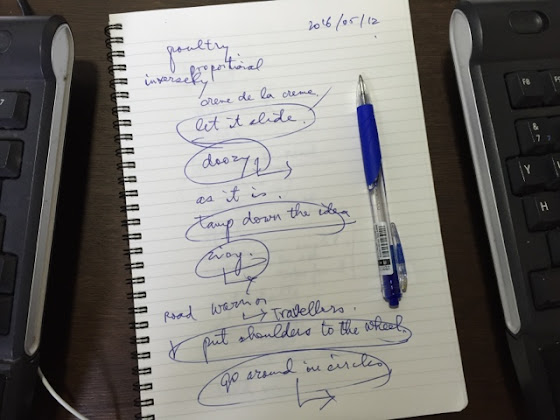 2016/05/12
poultry
inversely proportional
creme de la creme.
let it slide.
doozy
as it is.
tamp down the idea
Road warrior
→ Travellers.
put shoulders to the wheel.
go around in circles
F8
7
&
7
Y
H
B
N